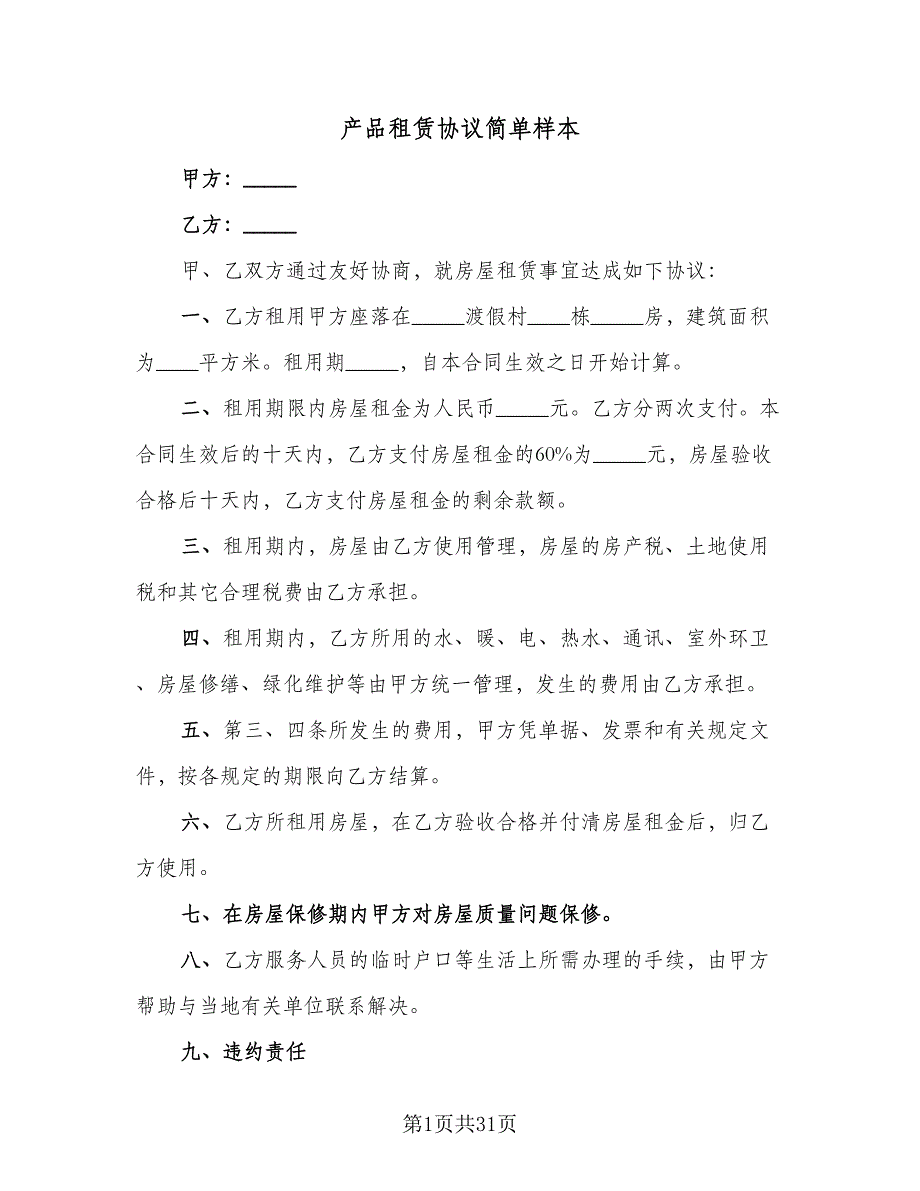 产品租赁协议简单样本
甲方：_____
乙方：_____
甲、乙双方通过友好协商，就房屋租赁事宜达成如下协议：
一、乙方租用甲方座落在_____渡假村____栋_____房，建筑面积
为____平方米。租用期_____，自本合同生效之日开始计算。
二、租用期限内房屋租金为人民币_____元。乙方分两次支付。本
合同生效后的十天内，乙方支付房屋租金的60%为_____元，房屋验收
合格后十天内，乙方支付房屋租金的剩余款额。
三、租用期内，房屋由乙方使用管理，房屋的房产税、土地使用
税和其它合理税费由乙方承担。
四、租用期内，乙方所用的水、暖、电、热水、通讯、室外环卫
、房屋修缮、绿化维护等由甲方统一管理，发生的费用由乙方承担。
五、第三、四条所发生的费用，甲方凭单据、发票和有关规定文
件，按各规定的期限向乙方结算。
六、乙方所租用房屋，在乙方验收合格并付清房屋租金后，归乙
方使用。
七、在房屋保修期内甲方对房屋质量问题保修。
八、乙方服务人员的临时户口等生活上所需办理的手续，由甲方
帮助与当地有关单位联系解决。
九、违约责任
第1页共31页